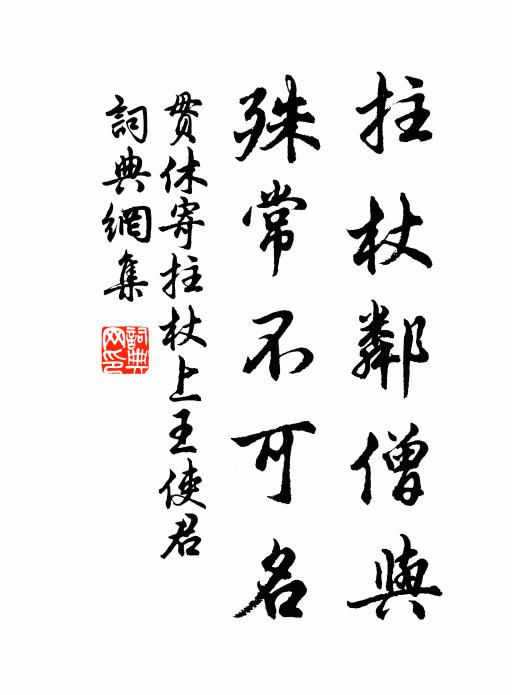 拄杖鄰僧與
殊常不可名
貫休寄拄杖上王使君
詞典網集
詞典网印